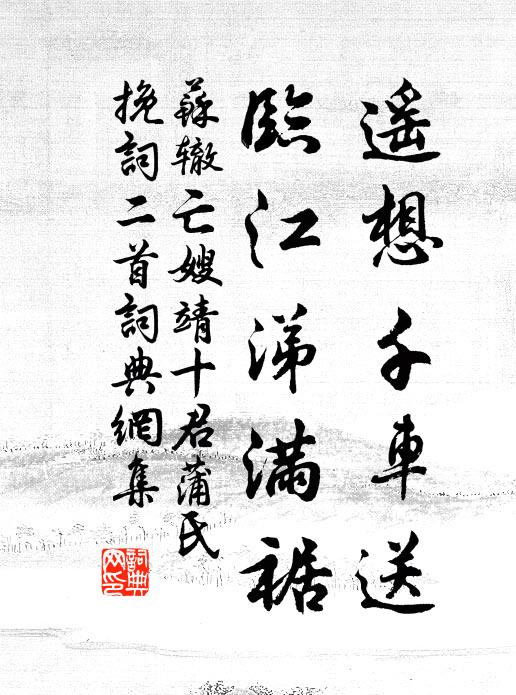 遥想千車送
臨江涕滿裾
蘇辙亡嫂靖十君蒲氏
挽詞二首詞典網集
詞典
网印